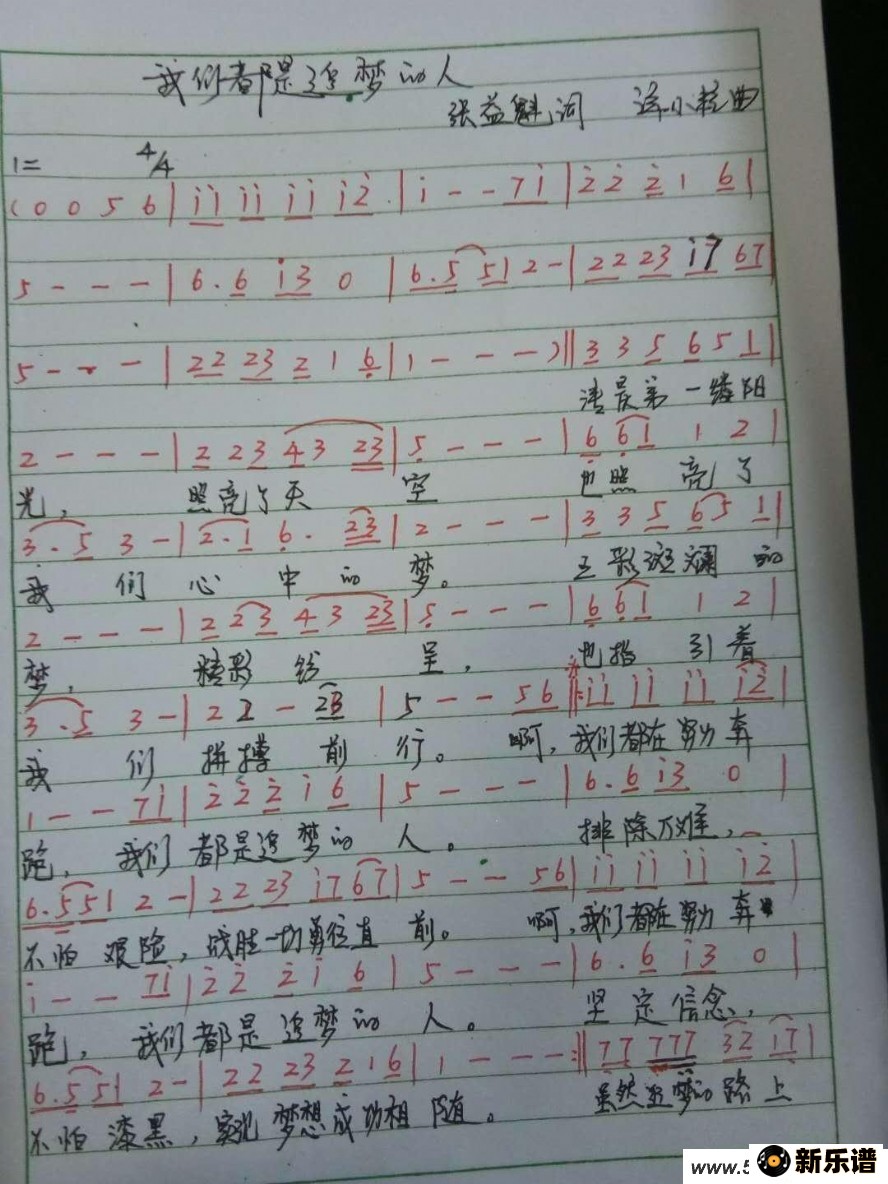 我们都是追梦的人
张益魁词 小粒曲
1= 4/4
(0 0 5 6 | i i i i i i i 2 | i - - 7 i | 2 2 2 1 6 |
5 - - - | 6 . 6 i 3 0 | 6 . 5 5 1 2 - | 2 2 2 3 i 7 6 7 |
5 - - - | 2 2 2 3 2 1 6 | 1 - - - ) || 3 3 5 6 5 1 |
清晨第一缕阳
2 - - - | 2 2 3 4 3 2 3 | 5 - - - | 6 6 1 1 2 |
光， 照亮了天 空 也照 亮了
3 . 5 3 - | 2 . 1 6 . 2 3 | 2 - - - | 3 3 5 6 5 1 |
我 们 心 中 的 梦。 五彩斑斓 的
2 - - - | 2 2 3 4 3 2 3 | 5 - - - | 6 6 1 1 2 |
梦， 精彩 纷 呈， 也指 引着
3 . 5 3 - | 2 2 - 2 3 | 5 - - 5 6 ||: i i i i i i i 2 |
我 们 拼搏 前 行。 啊，我们都在努力奔
1 - - 7 i | 2 2 2 i 6 | 5 - - - | 6 . 6 i 3 0 |
跑， 我们 都是追 梦的 人。 排除万难，
6 . 5 5 1 2 - | 2 2 2 3 i 7 6 7 | 5 - - 5 6 | i i i i i i i 2 |
不怕 艰险，战胜一切勇往直 前。 啊，我们都在努力 奔
i - - 7 i | 2 2 2 i 6 | 5 - - - | 6 . 6 i 3 0 |
跑， 我们都是 追梦的 人。 坚定信念，
6 . 5 5 1 2 - | 2 2 2 3 2 1 6 | 1 - - - :|| 7 7 7 7 7 3 2 i 7 |
不怕 漆黑，实现 梦想成功相 随。 虽然追梦的路上
www.5
新乐谱